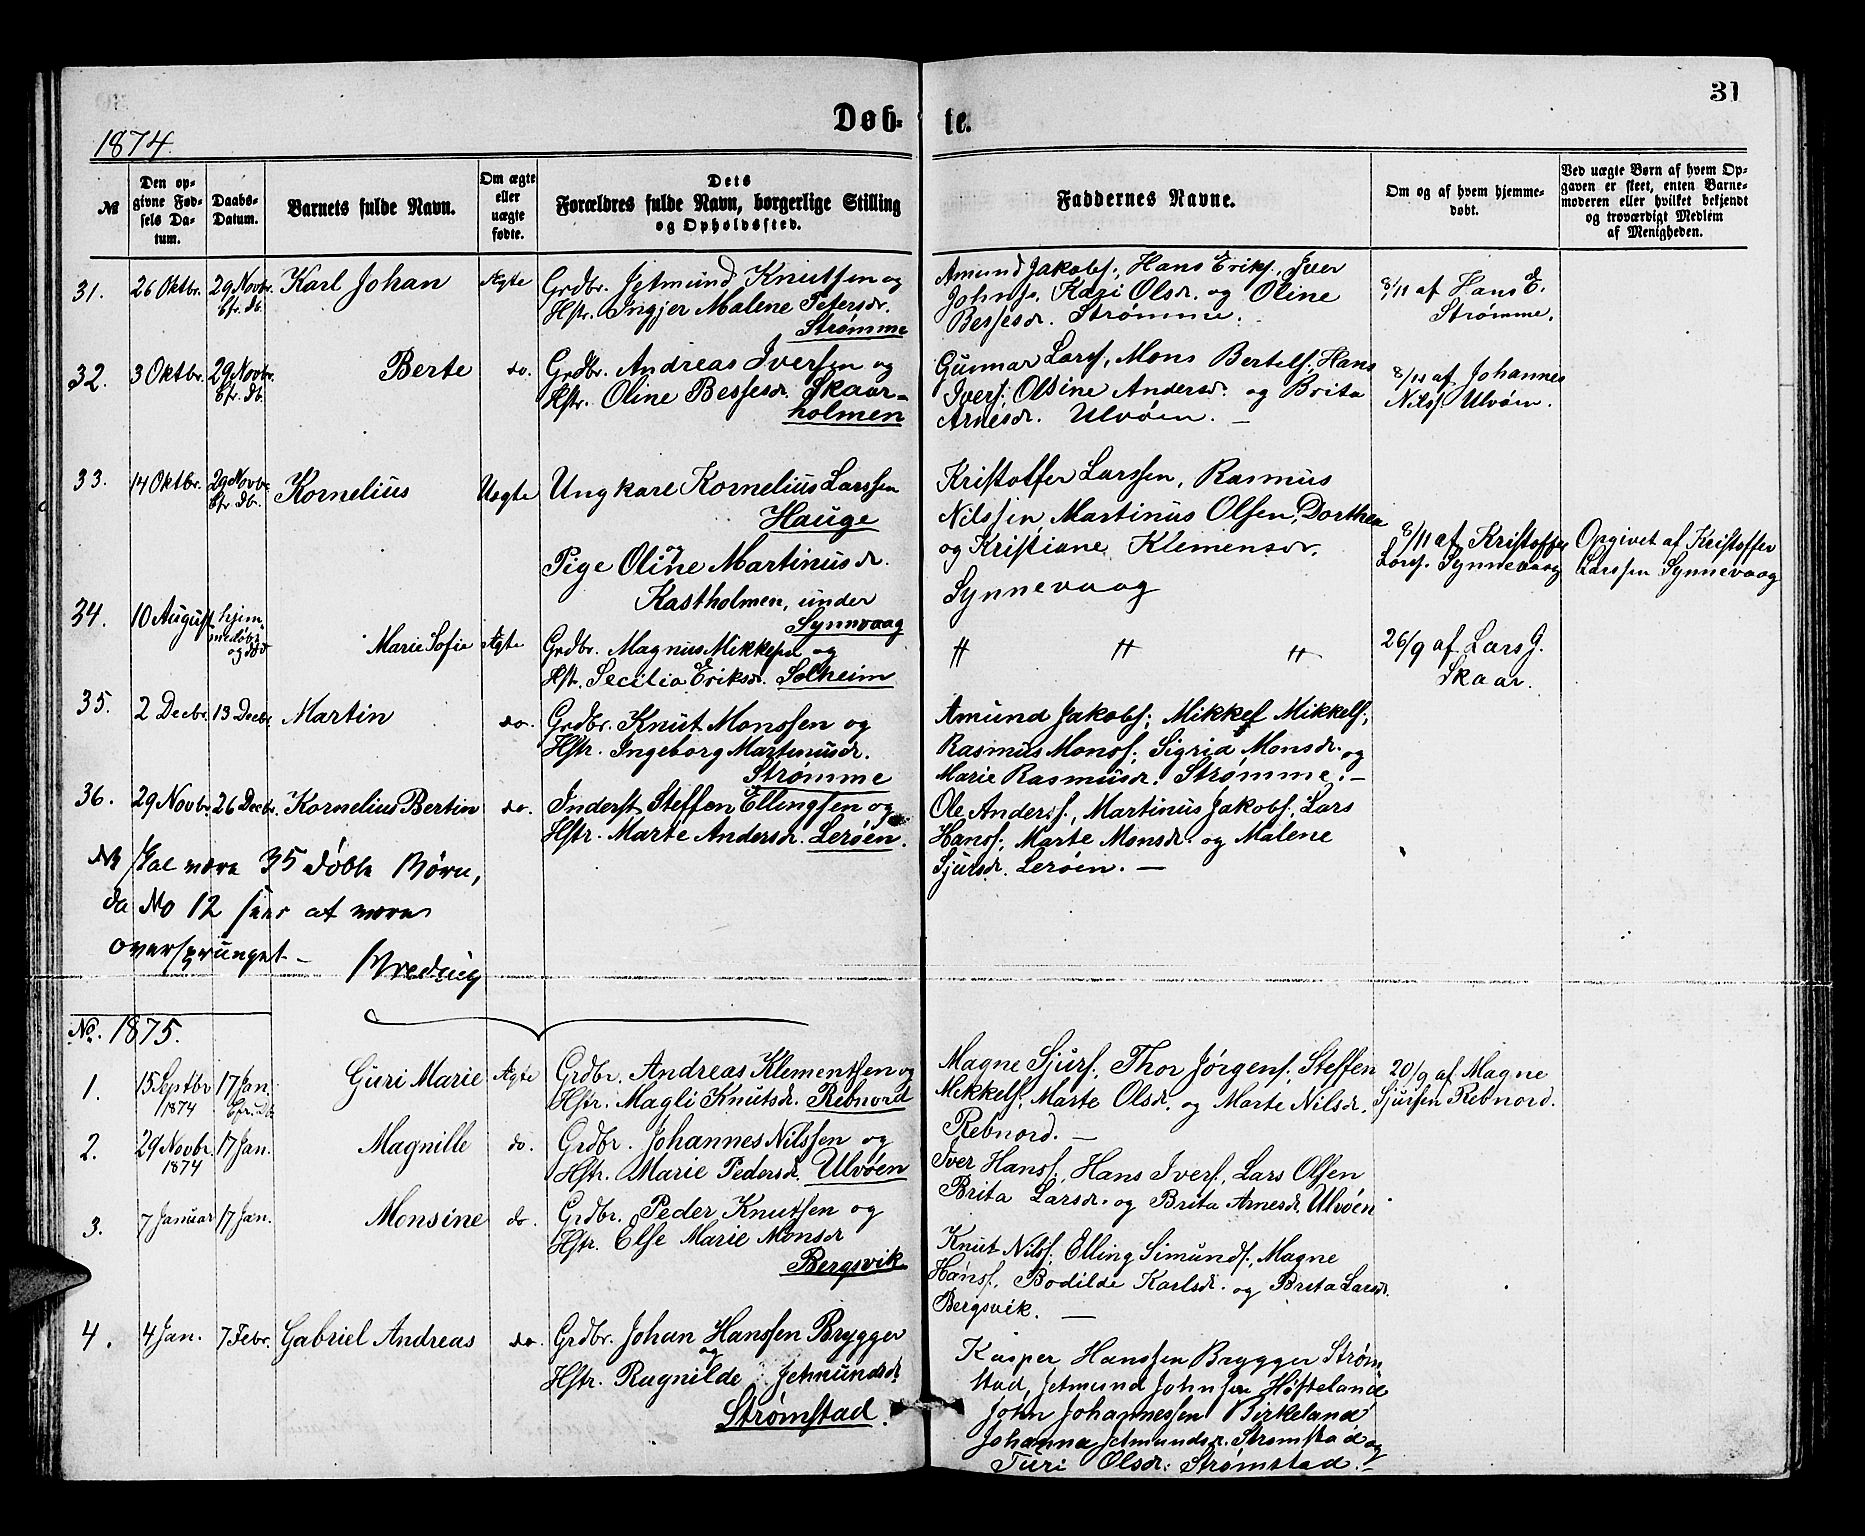 31
1874.
Døb- te.
№
Den op-
givne Fød-
sels Da-
tum.
Daabs-
Datum.
Barnets fulde Navn.
Om ægte
eller
uægte
fødte.
Dets
Forældres fulde Navn, borgerlige Stilling
og Opholdssted.
Faddernes Navne.
Om og af hvem hjemme-
døbt.
Ved uægte Børn af hvem Op-
gaven er skeet, enten Barne-
moderen eller hvilket bekjendt
og troværdigt Medlem
af Menigheden.
31. 26 Oktbr. 29 Novbr. bfr. db. Karl Johan Ægte
Grdbr. Jetmund Knutsen og
Hstr. Ingjer Malene Petersdr.
Strømme
Amund Jakobs., Hans Eriks., Iver
Johns., Kari Olsdr. og Oline
Bessesdr. Strømme.
8/11 af Hans E.
Strømme.
32. 3 Oktbr. 29 Novbr. bfr. db. Berte do.
Grdbr. Andreas Iversen og
Hstr. Oline Bessesdr. Skaar-
holmen
Gunnar Lars., Mons Bertels., Hans
Ivers., Olsine Andersd. og Brita
Arnesdr. Ulvøen. —
8/11 af Johannes
Nilss. Ulvøen.
33. 14 Oktbr. 29 Novbr. bfr. db. Kornelius Uægte
Ungkarl Kornelius Larssen
Hauge
og
Pige Oline Martinusdr.
Kastholmen, under
Synnvaag
Kristoffer Larssen, Rasmus
Nilssen, Martinus Olsen, Dorthea
og Kristiane Klemensdr.
Synnevaag
8/11 af Kristoffer
Larss. Synnevaag
Opgivet af Kristoffer
Larssen Synnevaag
34. 10 August hjem-
medøbt
og død
Marie Sofie Ægte
Grdbr. Magnus Mikkelsen og
Hstr. Secilia Eriksdr. Solheim
" " "
26/9 af Lars G.
Skaar.
35. 2 Decbr. 13 Decbr. Martin do.
Grdbr. Knut Monssen og
Hstr. Ingeborg Martinusdr.
Strømme
Amund Jakobs., Mikkel Mikkels.,
Rasmus Monss., Sigrid Monsdr. og
Marie Rasmusdr. Strømme. —
36. 29 Novbr. 26 Decbr. Kornelius Bertin do.
Inderst Steffen Ellingsen og
Hstr. Marte Andersdr. Lerøen.
Ole Anderss., Martinus Jakobs., Lars
Hanss., Marte Monsdr. og Malene
Sjursdr. Lerøen. —
NB skal være 35 døbte Børn,
da No 12 sees at være
oversprunget —
No. 1875.
1. 15 Septbr. 1874 17 Jan. bfr. db. Guri Marie Ægte
Grdbr. Andreas Klementsen og
Hstr. Magli Knutsdr. Rebnord
Magne Sjurs., Thor Jørgens., Steffen
Mikkels., Marte Olsdr. og Marte Nilsdr.
Rebnord. —
20/9 af Magne
Sjursen Rebnord.
2. 29 Novbr. 1874 17 Jan. Magnille do.
Grdbr. Johannes Nilssen og
Hstr. Marie Pedersdr. Ulvøen
Iver Hanss., Hans Ivers., Lars Olsen
Brita Larsdr. og Brita Arnesdr. Ulvøen
3. 7 Januar 17 Jan. Monsine do.
Grdbr. Peder Knutsen og
Hstr. Else Marie Monsdr
Bergsvik
Knut Nilss., Elling Simunds., Magne
Hanss., Bodilde Karlsdr. og Brita Larsdr.
Bergsvik. —
4. 4 Jan. 7 Febr. Gabriel Andreas do.
Grdbr. Johan Hanssen Brygger
og
Hstr. Ragnilde Jetmundsdr
Strømstad.
Kasper Hanssen Brygger Strøm-
stad, Jetmund Johnsen Høfteland
John Johannessen Birkeland
Johanna Jetmundsdr. Strømstad og
Turi Olsdr. Strømstad. —